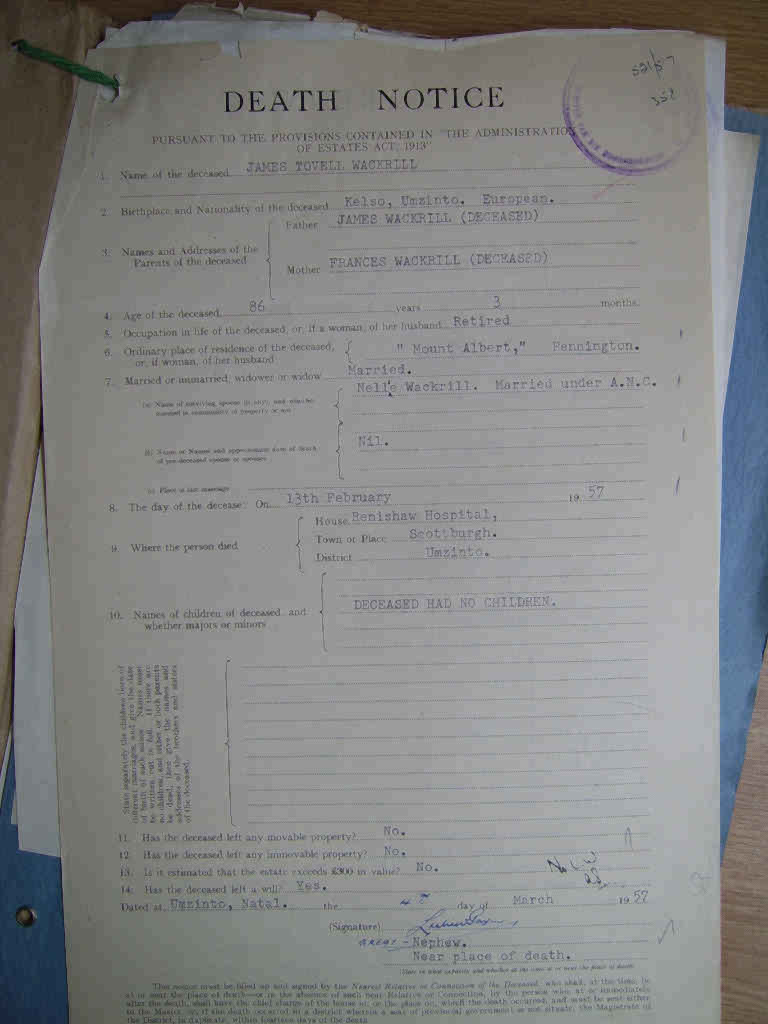 521/57
552
DEATH NOTICE
PURSUANT TO THE PROVISIONS CONTAINED IN "THE ADMINISTRATION
OF ESTATES ACT, 1913"
1. Name of the deceased JAMES TOVELL WACKRILL
2. Birthplace and Nationality of the deceased Kelso, Umzinto. European.
3. Names and Addresses of the Parents of the deceased
Father JAMES WACKRILL (DECEASED)
Mother FRANCES WACKRILL (DECEASED)
4. Age of the deceased 86 years 3 months.
5. Occupation in life of the deceased, or, if a woman, of her husband Retired
6. Ordinary place of residence of the deceased,
or, if woman, of her husband " Mount Albert," Pennington.
7. Married or unmarried, widower or widow Married.
(a) Name of surviving spouse (if any), and whether
married in community of property or not
Nelle Wackrill. Married under A.N.C.
(b) Name or Names and approximate date of death
of pre-deceased spouse or spouses
Nil.
(c) Place of last marriage
8. The day of the decease: On 13th February 1957
9. Where the person died
House Renishaw Hospital,
Town or Place Scottburgh.
District Umzinto.
10. Names of children of deceased, and
whether majors or minors
DECEASED HAD NO CHILDREN.
State separately the children born of
different marriages, and give the date
of birth of each minor. Names must
be written out in full. If there are
no children, and either or both parents
be dead, then give the names and
addresses of the brothers and sisters
of the deceased.
11. Has the deceased left any movable property? No.
12. Has the deceased left any immovable property? No.
13. Is it estimated that the estate exceeds £300 in value? No.
14. Has the deceased left a will? Yes.
Dated at Umzinto, Natal. the 4th day of March 1957
(Signature)
GREAT-Nephew.
Near place of death.
(State in what capacity and whether at the time at or near the place of death)
This notice must be filled up and signed by the Nearest Relative or Connection of the Deceased, who shall, at the time, be
at or near the place of death—or in the absence of such near Relative or Connection, by the person who at or immediately
after the death, shall have the chief charge of the house in, or the place on, which the death occurred, and must be sent either
to the Master, or, if the death occurred in a district wherein a seat of provincial government is not situate, the Magistrate of
the District, in duplicate, within fourteen days of the death